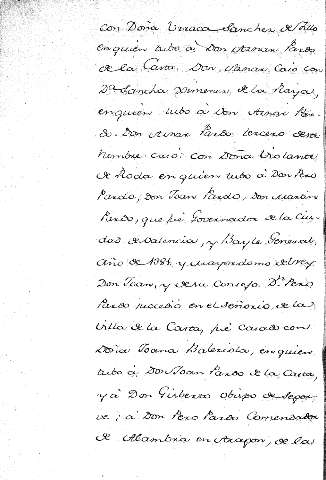 con Doña Urraca Sanchez, de
en quien tubo à Don Aznar Pardo
de la Casta. Don Aznar, Casó con
Dª Sancha Ximenez, de la Raya,
en quien tubo à Don Aznar Par-
do. Don Aznar Pardo tercero de este
Nombre casó con Doña Violante
de Roda en quien tubo à Don Pero
Pardo, Don Juan Pardo, Don
Pardo, que fué Governador de la Ciu-
dad de Valencia, y Bayle General,
año de y mayordomo del rey
Don Juan, y de su Consejo. Dn Pero
Pardo sucedió en el Señorio de la
Villa de la Casta, fué casado con
Doña Joana Valeriola, en quien
tubo à Don Juan Pardo de la Casta,
y à Don Gisberto obispo de Segor-
ve; à Don Pero Pardo Comendador
de Alhambra en Aragon, de las